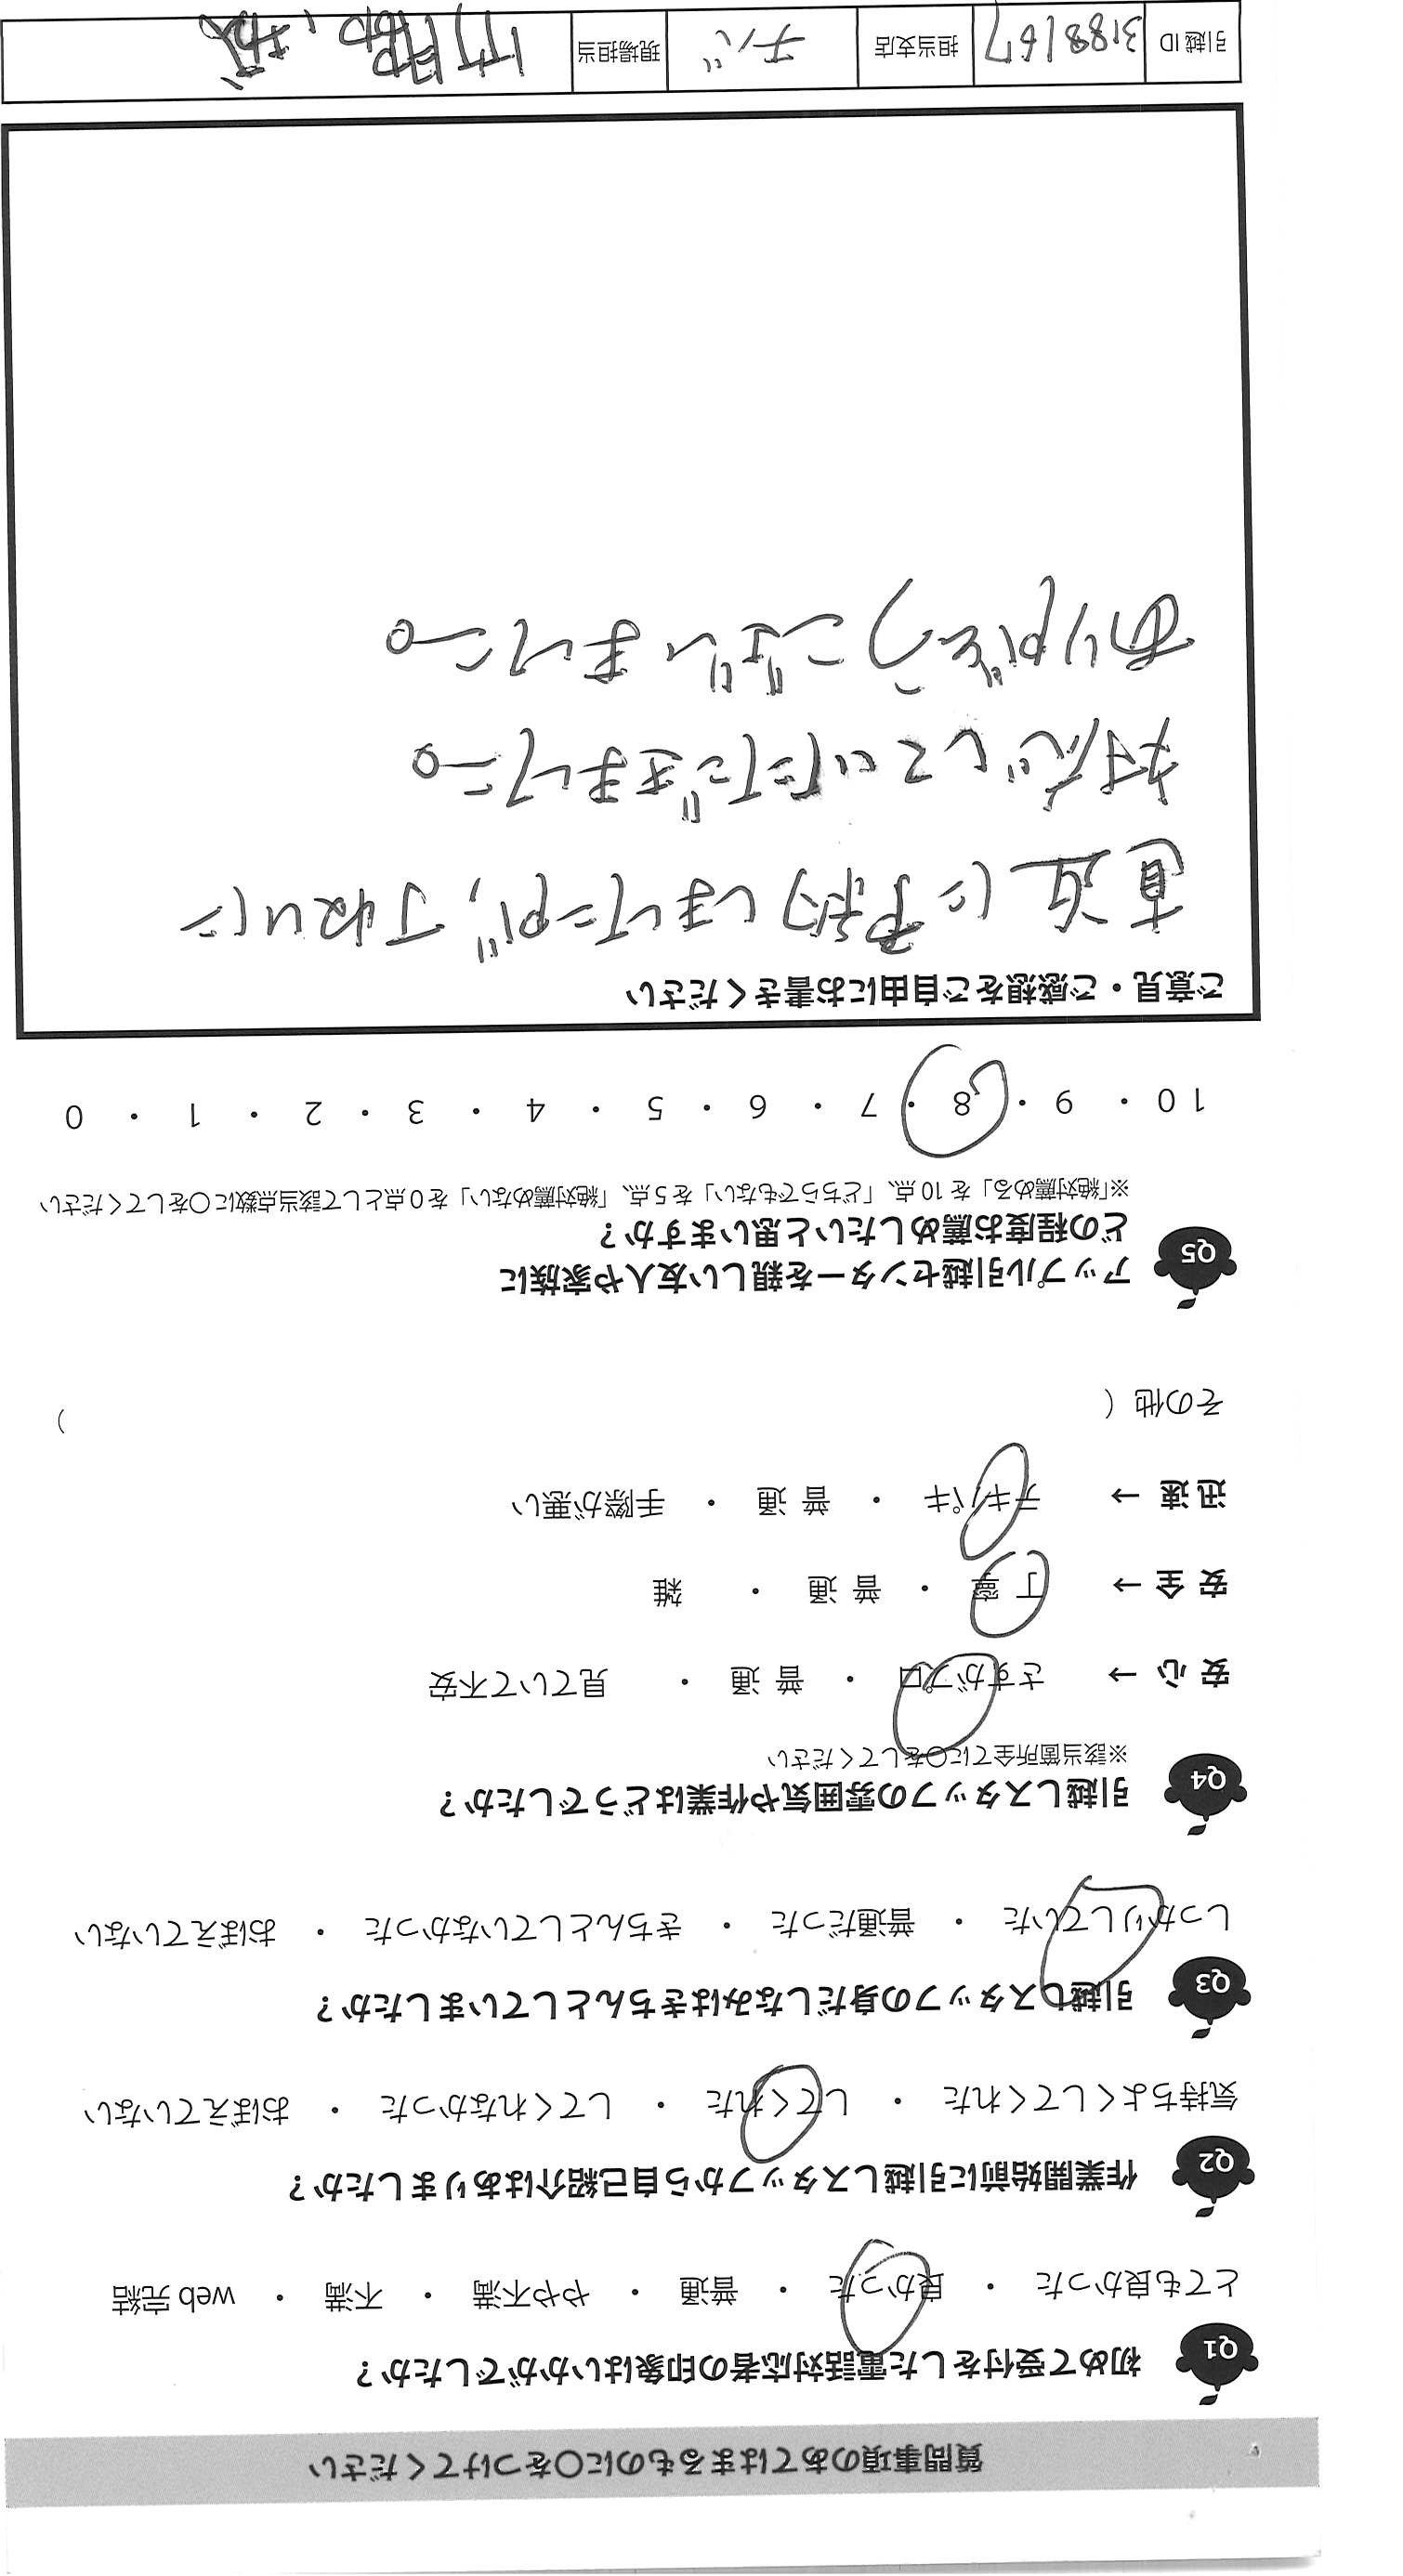 質問事項のあてはまるものに〇をつけてください
Q1 初めて受付をした電話対応者の印象はいかがでしたか？
とても良かった ・ 良かった ・ 普通 ・ やや不満 ・ 不満 ・ web 完結
Q2 作業開始前に引越しスタッフから自己紹介はありましたか？
気持ちよくしてくれた ・ してくれた ・ してくれなかった ・ おぼえていない
Q3 引越しスタッフの身だしなみはきちんとしていましたか？
しっかりしていた ・ 普通だった ・ きちんとしていなかった ・ おぼえていない
Q4 引越しスタッフの雰囲気や作業はどうでしたか？
※該当箇所全てに〇をしてください
安 心 → さすがプロ ・ 普 通 ・ 見ていて不安
安 全 → 丁 寧 ・ 普 通 ・ 雑
迅 速 → テキパキ ・ 普 通 ・ 手際が悪い
その他（ ）
Q5 アップル引越センターを親しい友人や家族に
どの程度お薦めしたいと思いますか？
※「絶対薦める」を 10 点、「どちらでもない」を 5 点、「絶対薦めない」を 0 点として該当点数に〇をしてください
10 ・ 9 ・ 8 ・ 7 ・ 6 ・ 5 ・ 4 ・ 3 ・ 2 ・ 1 ・ 0
ご意見・ご感想をご自由にお書きください
直近に予約しましたが、丁ねいに
対応していただきました。
ありがとうございました。
引越 ID 3188167 担当支店 チバ 現場担当